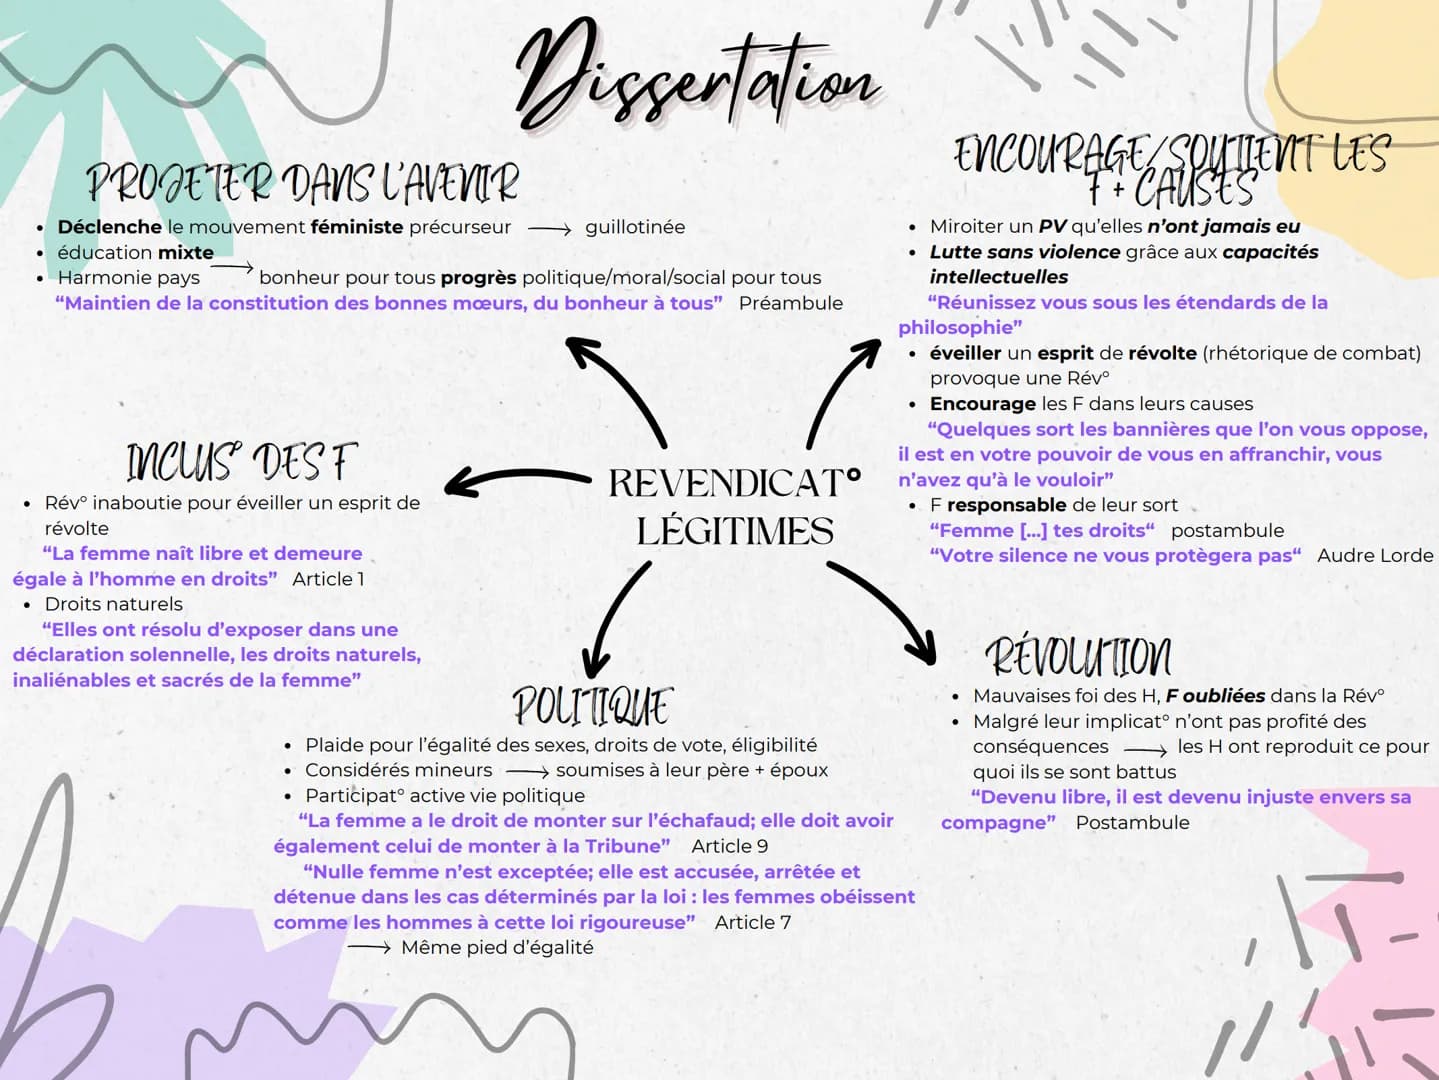 Dissertation
PROJETER DANS L'AVENIR
• Déclenche le mouvement féministe précurseur → guillotinée
• éducation mixte
• Harmonie pays → bonheur pour tous progrès politique/moral/social pour tous
“Maintien de la constitution des bonnes mœurs, du bonheur à tous” Préambule
ENCOURAGE/SOUTIENT LES
F + CAUSES
• Miroiter un PV qu’elles n’ont jamais eu
• Lutte sans violence grâce aux capacités
intellectuelles
“Réunissez vous sous les étendards de la
philosophie”
• éveiller un esprit de révolte (rhétorique de combat)
provoque une Rév°
• Encourage les F dans leurs causes
“Quelques sort les bannières que l’on vous oppose,
il est en votre pouvoir de vous en affranchir, vous
n’avez qu’à le vouloir”
• F responsable de leur sort
“Femme [...] tes droits“ postambule
“Votre silence ne vous protègera pas“ Audre Lorde
INCLUS° DES F
• Rév° inaboutie pour éveiller un esprit de
révolte
“La femme naît libre et demeure
égale à l’homme en droits” Article 1
• Droits naturels
“Elles ont résolu d’exposer dans une
déclaration solennelle, les droits naturels,
inaliénables et sacrés de la femme”
REVENDICAT°
LÉGITIMES
POLITIQUE
• Plaide pour l’égalité des sexes, droits de vote, éligibilité
• Considérés mineurs → soumises à leur père + époux
• Participat° active vie politique
“La femme a le droit de monter sur l’échafaud; elle doit avoir
également celui de monter à la Tribune” Article 9
“Nulle femme n’est exceptée; elle est accusée, arrêtée et
détenue dans les cas déterminés par la loi : les femmes obéissent
comme les hommes à cette loi rigoureuse” Article 7
→ Même pied d’égalité
RÉVOLUTION
• Mauvaises foi des H, F oubliées dans la Rév°
• Malgré leur implicat° n’ont pas profité des
conséquences → les H ont reproduit ce pour
quoi ils se sont battus
“Devenu libre, il est devenu injuste envers sa
compagne” Postambule